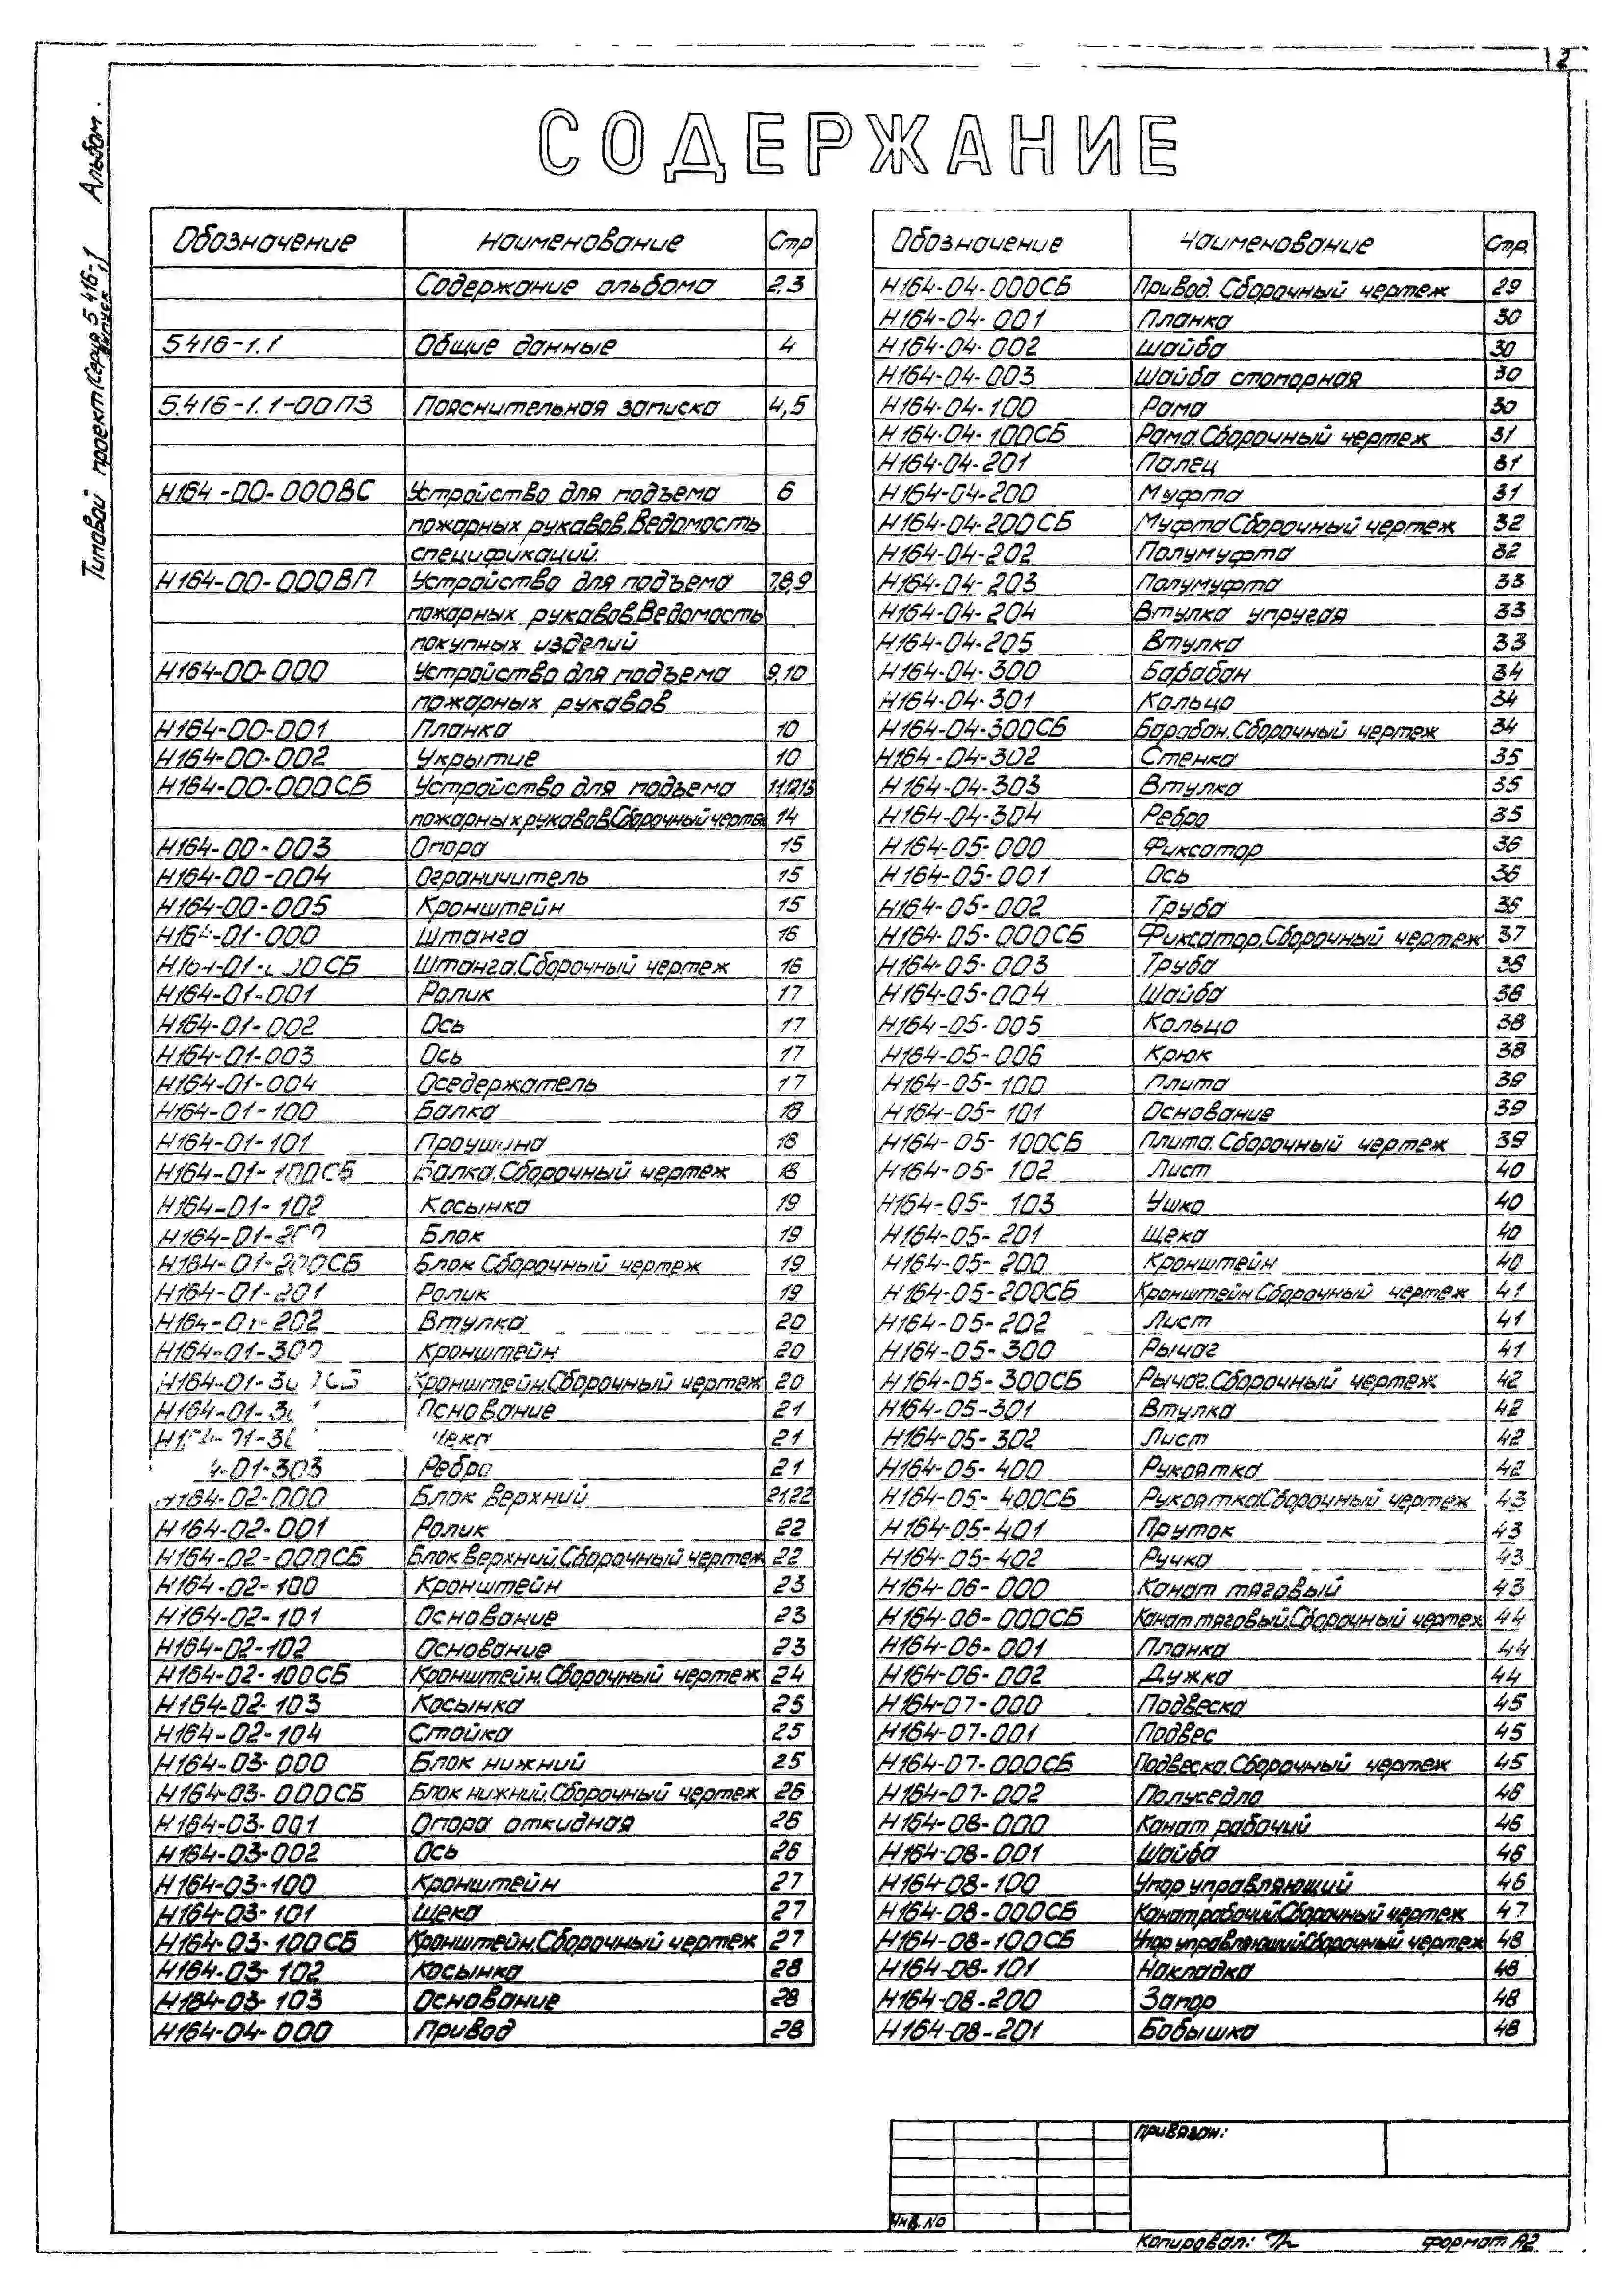 2
Типовой проект (Серия 5 416-1 Альбом.
выпуск 1)
СОДЕРЖАНИЕ
Обозначение Наименование Стр
Содержание альбома 2,3
5416-1.1 Общие данные 4
5.416-1.1-00ПЗ Пояснительная записка 4,5
Н164-00-000ВС Устройство для подъема 6
пожарных рукавов.Ведомость
спецификаций.
Н164-00-000ВП Устройство для подъема 7,8,9
пожарных рукавов.Ведомость
покупных изделий
Н164-00-000 Устройство для подъема 9,10
пожарных рукавов
Н164-00-001 Планка 10
Н164-00-002 Укрытие 10
Н164-00-000СБ Устройство для подъема 11,12,13
пожарных рукавов.Сборочный чертеж 14
Н164-00-003 Опора 15
Н164-00-004 Ограничитель 15
Н164-00-005 Кронштейн 15
Н164-01-000 Штанга 16
СБ Штанга.Сборочный чертеж 16
Н164-01-001 Ролик 17
Н164-01-002 Ось 17
Н164-01-003 Ось 17
Н164-01-004 Оседержатель 17
Н164-01-100 Балка 18
Н164-01-101 Проушина 18
Н164-01-100СБ Балка.Сборочный чертеж 18
Н164-01-102 Косынка 19
Блок 19
Н164-01-200СБ Блок Сборочный чертеж 19
Н164-01-201 Ролик 19
Н164-01-202 Втулка 20
Н164-01-300 Кронштейн 20
Кронштейн.Сборочный чертеж 20
Основание 21
21
4-01-303 Ребро 21
Н164-02-000 Блок верхний 21,22
Н164-02-001 Ролик 22
Н164-02-000СБ Блок верхний.Сборочный чертеж 22
Н164-02-100 Кронштейн 23
Н164-02-101 Основание 23
Н164-02-102 Основание 23
Н164-02-100СБ Кронштейн.Сборочный чертеж 24
Н164-02-103 Косынка 25
Н164-02-104 Стойка 25
Н164-03-000 Блок нижний 25
Н164-03-000СБ Блок нижний.Сборочный чертеж 26
Н164-03-001 Опора откидная 26
Н164-03-002 Ось 26
Н164-03-100 Кронштейн 27
Н164-03-101 Щека 27
Н164-03-100СБ Кронштейн.Сборочный чертеж 27
Н164-03-102 Косынка 28
Н164-03-103 Основание 28
Н164-04-000 Привод 28
Обозначение Наименование Стр.
Н164-04-000СБ Привод. Сборочный чертеж 29
Н164-04-001 Планка 30
Н164-04-002 Шайба 30
Н164-04-003 Шайба стопорная 30
Н164-04-100 Рама 30
Н164-04-100СБ Рама.Сборочный чертеж 31
Н164-04-201 Палец 31
Н164-04-200 Муфта 31
Н164-04-200СБ Муфта Сборочный чертеж 32
Н164-04-202 Полумуфта 32
Н164-04-203 Полумуфта 33
Н164-04-204 Втулка упругая 33
Н164-04-205 Втулка 33
Н164-04-300 Барабан 34
Н164-04-301 Кольцо 34
Н164-04-300СБ Барабан.Сборочный чертеж 34
Н164-04-302 Стенка 35
Н164-04-303 Втулка 35
Н164-04-304 Ребро 35
Н164-05-000 Фиксатор 36
Н164-05-001 Ось 36
Н164-05-002 Труба 36
Н164-05-000СБ Фиксатор.Сборочный чертеж 37
Н164-05-003 Труба 38
Н164-05-004 Шайба 38
Н164-05-005 Кольцо 38
Н164-05-006 Крюк 38
Н164-05-100 Плита 39
Н164-05-101 Основание 39
Н164-05-100СБ Плита.Сборочный чертеж 39
Н164-05-102 Лист 40
Н164-05-103 Ушко 40
Н164-05-201 Щека 40
Н164-05-200 Кронштейн 40
Н164-05-200СБ Кронштейн Сборочный чертеж 41
Н164-05-202 Лист 41
Н164-05-300 Рычаг 41
Н164-05-300СБ Рычаг.Сборочный чертеж 42
Н164-05-301 Втулка 42
Н164-05-302 Лист 42
Н164-05-400 Рукоятка 42
Н164-05-400СБ Рукоятка.Сборочный чертеж 43
Н164-05-401 Пруток 43
Н164-05-402 Ручка 43
Н164-06-000 Канат тяговый 43
Н164-06-000СБ Канат тяговый.Сборочный чертеж 44
Н164-06-001 Планка 44
Н164-06-002 Дужка 44
Н164-07-000 Подвеска 45
Н164-07-001 Подвес 45
Н164-07-000СБ Подвеска.Сборочный чертеж 45
Н164-07-002 Полуседло 46
Н164-08-000 Канат рабочий 46
Н164-08-001 Шайба 46
Н164-08-100 Упор управляющий 46
Н164-08-000СБ Канат рабочий.Сборочный чертеж 47
Н164-08-100СБ Упор управляющий.Сборочный чертеж 48
Н164-08-101 Накладка 48
Н164-08-200 Запор 48
Н164-08-201 Бобышка 48
Привязан:
Инв.No
Копировал:
формат А2